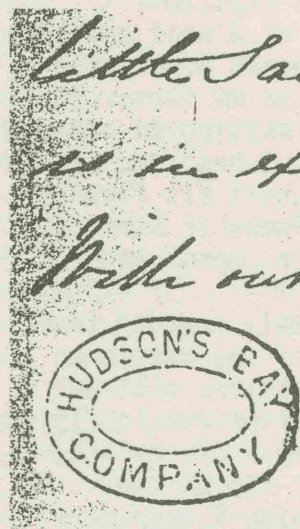 Little Sa
is in ex
With our
HUDSON'S BAY
COMPANY